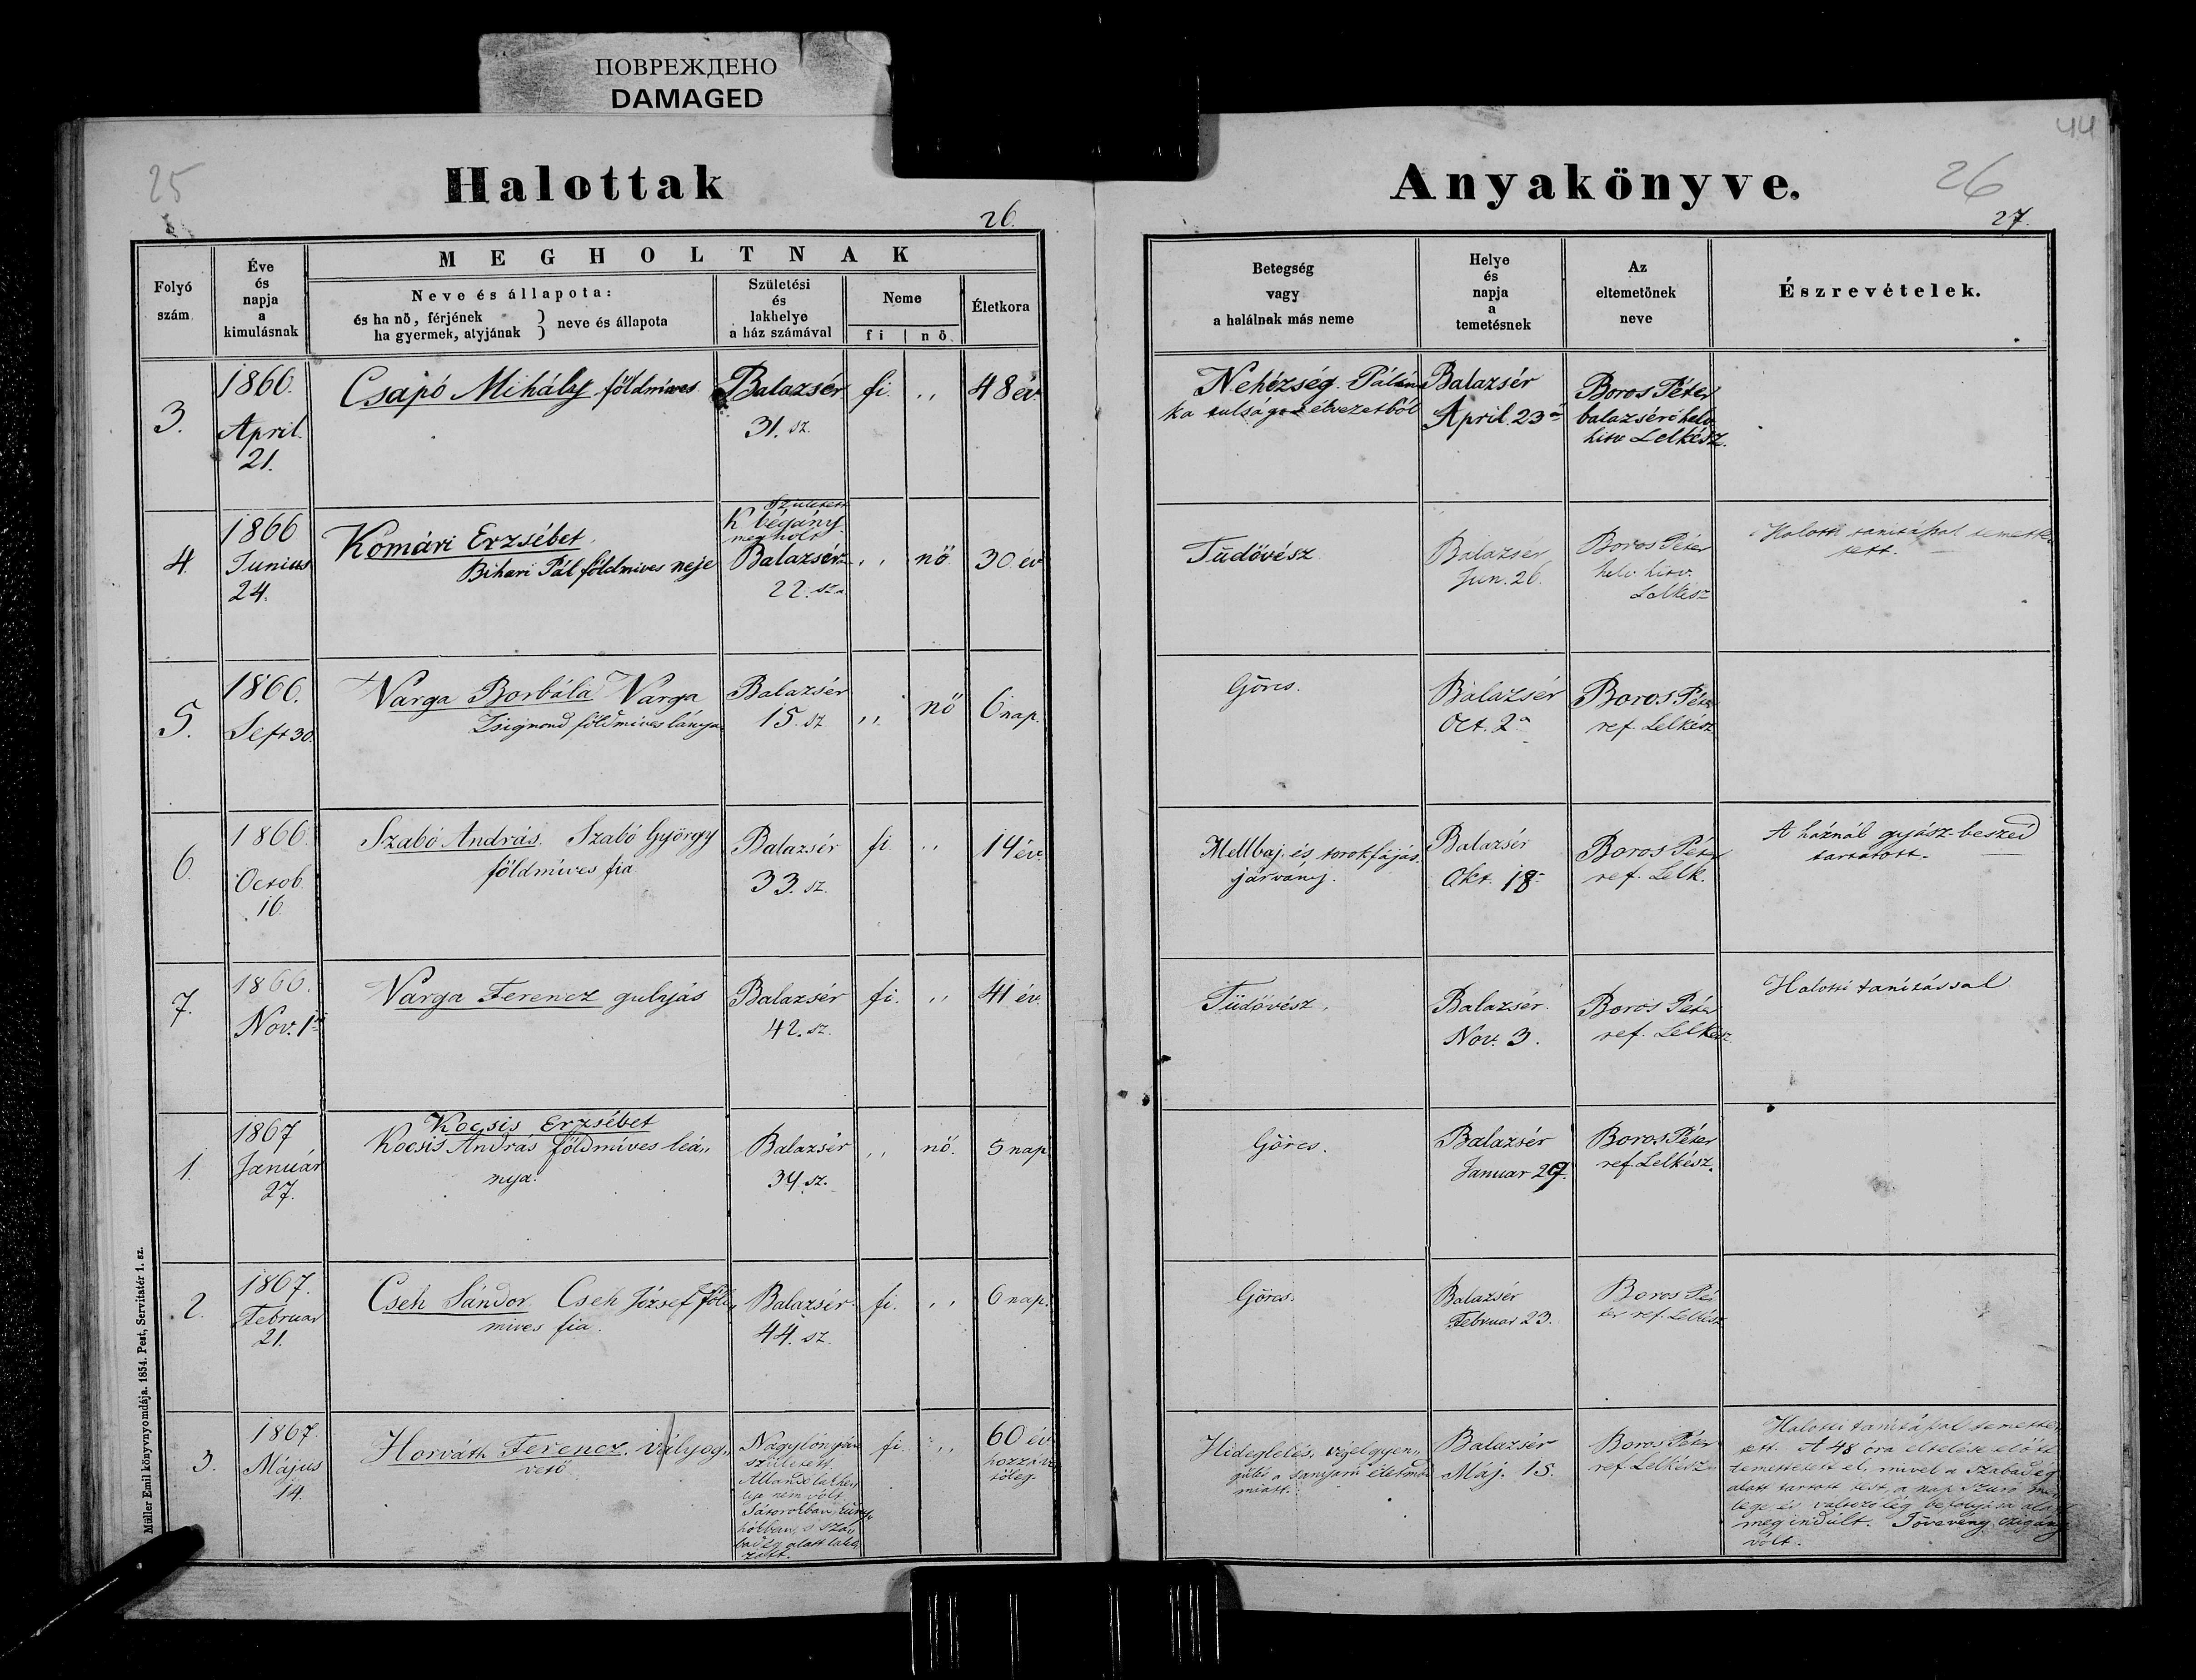 ПОВРЕЖДЕНО
DAMAGED
25
Halottak
26.
Folyó
szám
Éve
és
napja
a
kimulásnak
MEGHOLTNAK
Neve és állapota:
és ha nő, férjének
ha gyermek, atyjának } neve és állapota
Születési
és
lakhelye
a ház számával
Neme
fi | nö
Életkora
3.
1866.
April.
21.
Csapó Mihály földmíves
Balazsér
31. sz.
fi.
,,
48 év
4.
1866
Junius
24.
Komári Erzsébet
Bihari Pál földmives neje
Született
K bégány
megholt
Balazsér
22. sz.
,,
nö
30 év
5.
1866.
Sept 30.
Varga Borbála Varga
Zsigmond földmives lánya
Balazsér
15. sz
,,
nö
6 nap.
6.
1866.
Octob.
16.
Szabó András. Szabó György
földmíves fia
Balazsér
33. sz.
fi
,,
14 év.
7.
1866.
Nov. 1
Varga Ferencz gulyás
Balazsér
42. sz.
fi.
,,
41 év.
1.
1867
Január
27.
Kocsis Erzsébet
Kocsis András földmíves leá,,
nya.
Balazsér
34. sz.
,,
nö.
5 nap
2.
1867.
Februar
21.
Cseh Sándor Cseh József föld,,
míves fia.
Balazsér
44. sz.
fi.
,,
6 nap.
3.
1867.
Május
14.
Horváth Ferencz. Vályog,,
vető
született.
Állandó lakhe
lye nem volt
Sátorokban, kuny,,
hókban, s sza,,
bad ég alatt lako
zott.
fi.
,,
60 év
hozzáve
tőleg.
Müller Emil könyvnyomdája. 1854. Pest, Servitatér 1. sz.
44
Anyakönyve.
26
27.
Betegség
vagy
a halálnak más neme
Helye
és
napja
a
temetésnek
Az
eltemetőnek
neve
Észrevételek.
Nehézség. Pálin
ka tulságos élvezetből
Balazsér
April. 23
Boros Péter
balazséri helv.
hitv Lelkész.
Tüdővész
Balazsér
Jun. 26.
Boros Péter
helv. hitv.
Lelkész
Halotti tanitással temette
tett.
Görcs.
Balazsér
Oct. 2
Boros Péter
ref. Lelkész
Mellbaj és torokfájás
járvány.
Balazsér
Okt. 18
Boros Péter
ref. Lelk.
A háznál gyász-beszéd
tartatott.
Tüdővész.
Balazsér.
Nov. 3.
Boros Péter
ref. Lelkész
Halotti tanitással
Görcs.
Balazsér
Januar 29.
Boros Péter
ref. Lelkész.
Görcs.
Balazsér
Februar 23.
Boros Pé
ter ref. Lelkész
Hideglelés, végelgyen,,
gülés a
miatt.
Balazsér
Máj. 15.
Boros Péter
ref. Lelkész
Halotti tanitással temette
tett. A 48 óra eltelése előtt
temettetett el, mivel a szabad ég
alatt tartott test, a nap
lege és változó lég befolyása alatt
megindúlt. Jövevény czigány
volt.